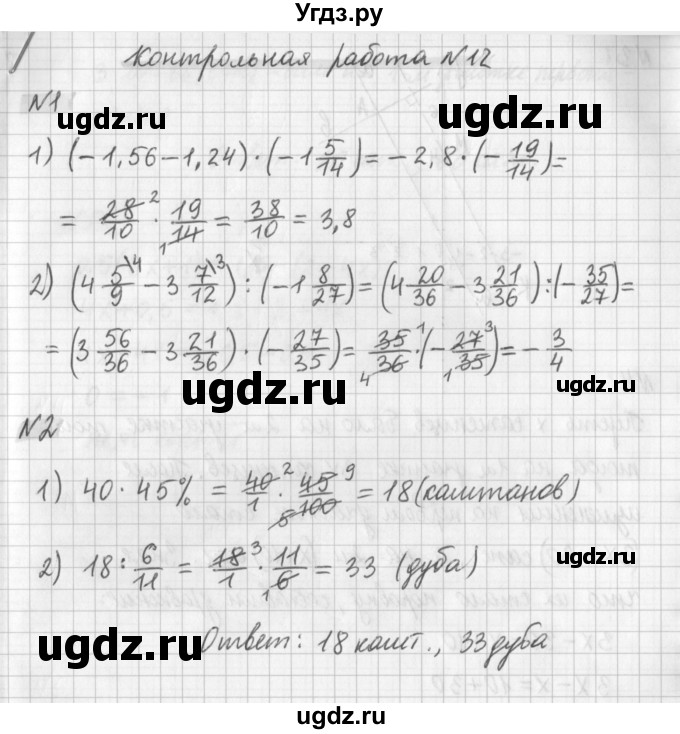 Угдз.ру
Контрольная работа №12
№1
ugdz.ru ugdz.ru
1) (-1,56-1,24)·(-1 5/14)= -2,8·(-19/14)=
= 28/10 ²·19/₁14 = 38/10 = 3,8
ugdz.ru
2) (4 5/9 \4 - 3 7/12 \3) : (-1 8/27)=(4 20/36 - 3 21/36):(-35/27)=
ugdz.ru ugdz.ru
=(3 56/36 - 3 21/36)·(-27/35)= 35/36 ¹₄·(-27/35 ³₁)= -3/4
ugdz.ru ugdz.ru
№2
ugdz.ru
1) 40·45% = 40/1 ²·45/100 ⁹₅ = 18(каштанов)
ugdz.ru
2) 18:6/11 = 18/1 ³·11/₁6 = 33 (дуба)
ugdz.ru ugdz.ru
Ответ: 18 кашт., 33 дуба
ugdz.ru
ugdz.ru